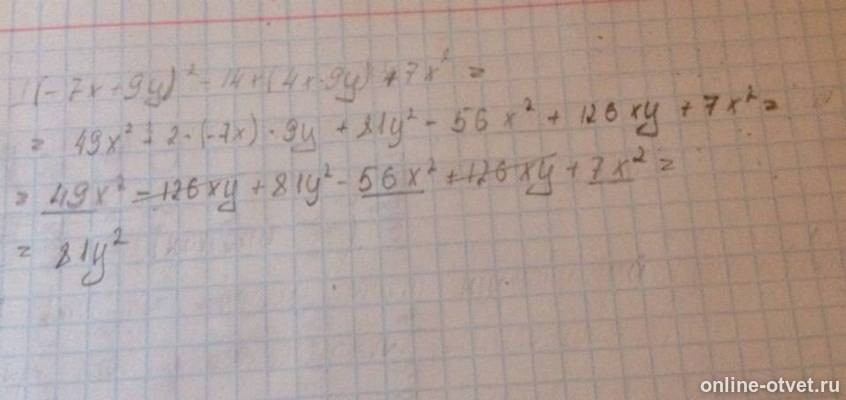 (-7x+9y)² - 14x(4x-9y)+7x² =
= 49x² + 2·(-7x)·9y + 81y² - 56x² + 126xy + 7x² =
= 49x² - 126xy + 81y² - 56x² + 126xy + 7x² =
= 81y²
online-otvet.ru